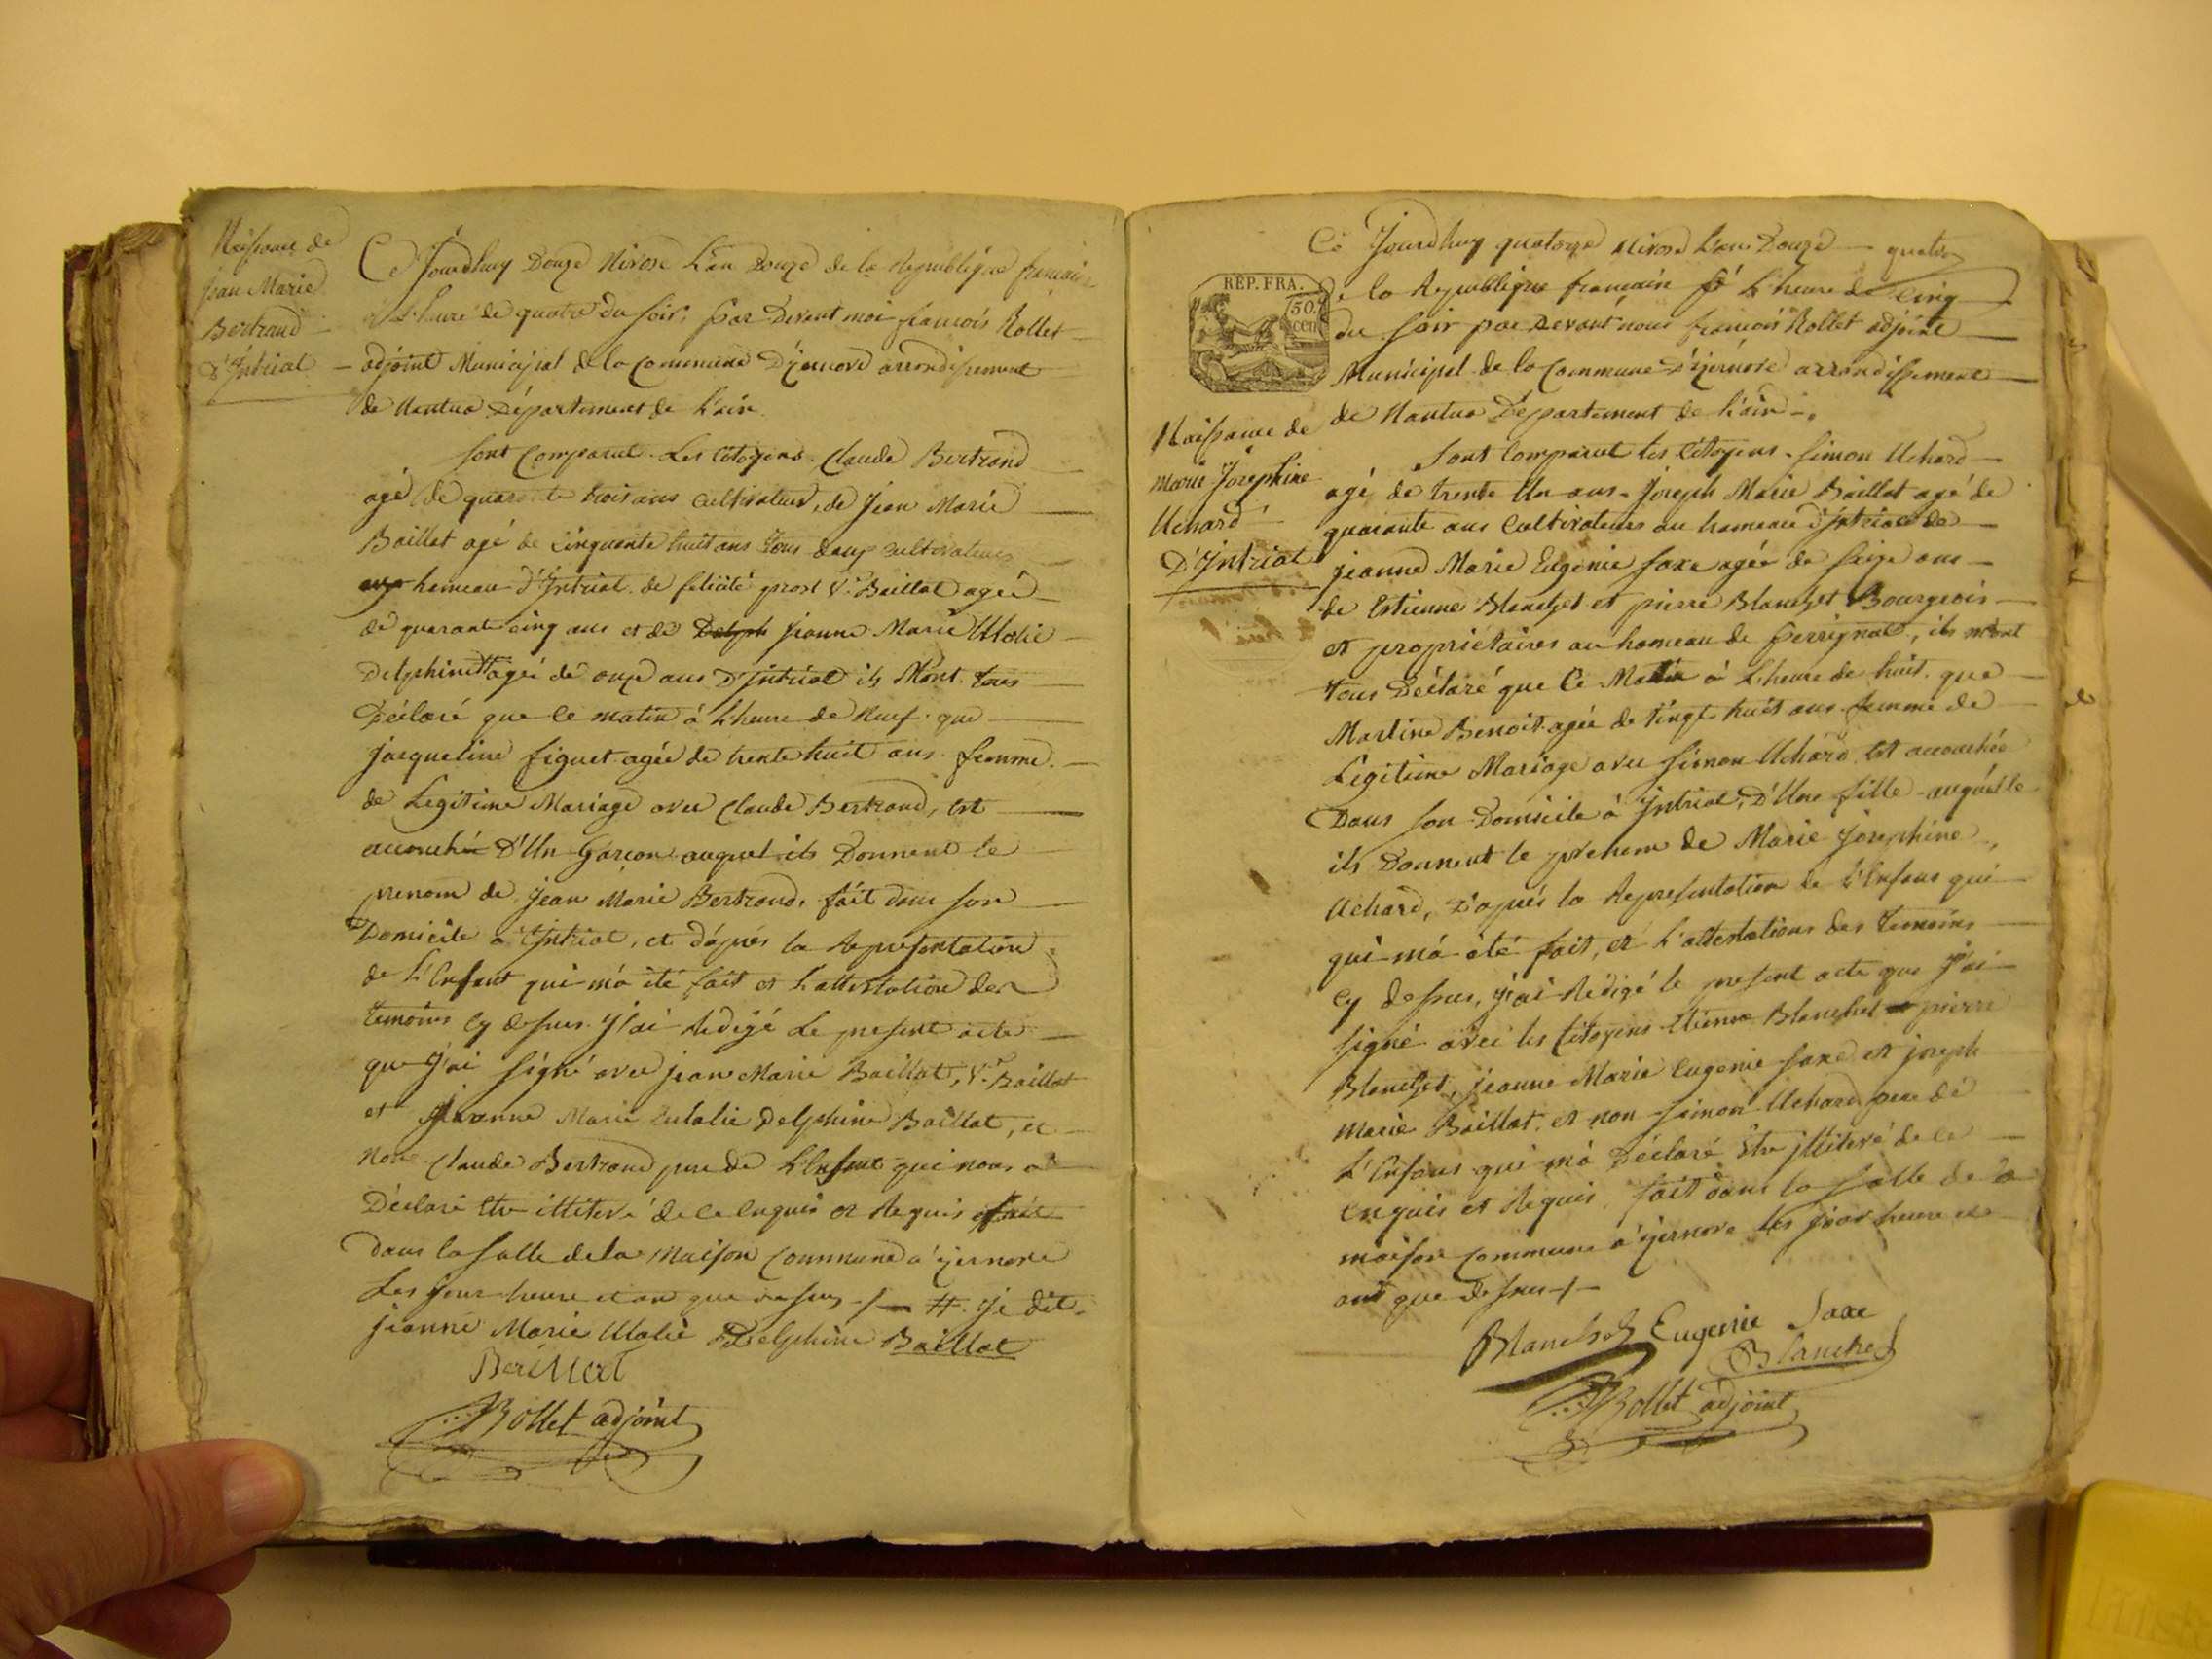 Naissance de
Jean Marie
Bertrand
D'Intriat
Ce Jourdhuy Douze Nivose L'an Douze de la Republique francaise
à L'heure de quatre du soir, par Devant moi francois Rollet
adjoint Municipal de la Commune D'yzernore arrondissement
de Nantua Département de L'ain.
sont Comparut Les Citoyens Claude Bertrand
agé de quarante trois ans Cultivateur, de Jean Marie
Baillat agé de Cinquante huit ans tous deux cultivateurs
hameau d'Intriat de felicité prost Ve. Baillat agée
de quarante cinq ans et de Delph Jeanne Marie Ulalie
Delphine # agée de onze ans D'intriat ils M'ont tous
Déclaré que le matin à L'heure de Neuf que
Jacqueline figuet agée de trente huit ans femme
de Legitime Mariage avec Claude Bertrand, est
accouchée D'Un Garcon auquel ils Donnent le
prenom de Jean Marie Bertrand, fait dans son
Domicile à Intriat, et d'aprés la Representation
de L'Enfant qui m'a été fait et L'attestation des
temoins Cy dessus. J'ai Redigé Le present acte
que J'ai signé avec Jean Marie Baillat, Ve. Baillat
et Jeanne Marie Eulalie Delphine Baillat, et
Non Claude Bertrand pere de L'Enfant qui nous a
Déclaré Etre illiteré de ce Enquis et Requis fait
dans la salle de la Maison Commune à yzernore
Les jour heure et an que dessus # je dit
jeanne Marie Ulalie Delphine Baillat
Baillat
Rollet adjoint
Ce Jourdhuy quatorze Nivose L'an Douze quatre
RÉP. FRA.
50.
cen
de la Republique francain à L'heure de Cinq
du soir par Devant nous francois Rollet adjoint
Municipal de la Commune D'yzernore arrondissement
de Nantua Département de L'ain
Naissance de
Marie Josephine
Uchard
D'Intriat
Sont Comparut les Citoyens Simon Uchard
agé de trente Un ans. Joseph Marie Baillat agé de
quarante ans Cultivateurs au hameau d'Intriat de
jeanne Marie Eugenie saxe agée de seize ans
de Estienne Blanchet et pierre Blanchet Bourgeois
et propriétaires au hameau de perrignat, ils m'ont
tous Déclaré que Ce Matin à L'heure de huit que
Martine Benoit agée de Vingt huit ans femme de
Legitime Mariage avec Simon Uchard Est accouchée
Dans son Domicile à Intriat, D'Une fille auquelle
ils Donnent le prenom de Marie Josephine
Uchard, D'aprés la Representation de L'Enfans qui
qui m'a été fait, et L'attestations des temoins
Cy dessus, j'ai Redigé le present acte que J'ai
signé avec les Citoyens Etienne Blanchet pierre
Blanchet, jeanne Marie Eugenie saxe et joseph
Marie Baillat, et non Simon Uchard pere de
L'Enfans qui m'a Déclaré Etre illiteré de ce
Enquis et Requis fait dans la salle de la
maison Commune à yzernore les jour heure et
ans que dessus
Blanchet Eugenie Saxe
Blanchet
Rollet adjoint